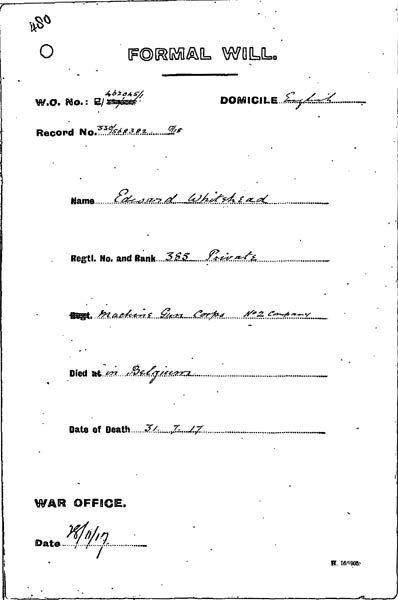 480
FORMAL WILL.
W.O. No.: E/ 463045/1
DOMICILE English
Record No. 18
Name Edward Whitehead
Regtl. No. and Rank 385 Private
Regt. Machine Gun Corps No 2 Company
Died at in Belgium
Date of Death 31. 7. 17
WAR OFFICE.
Date 28/11/17